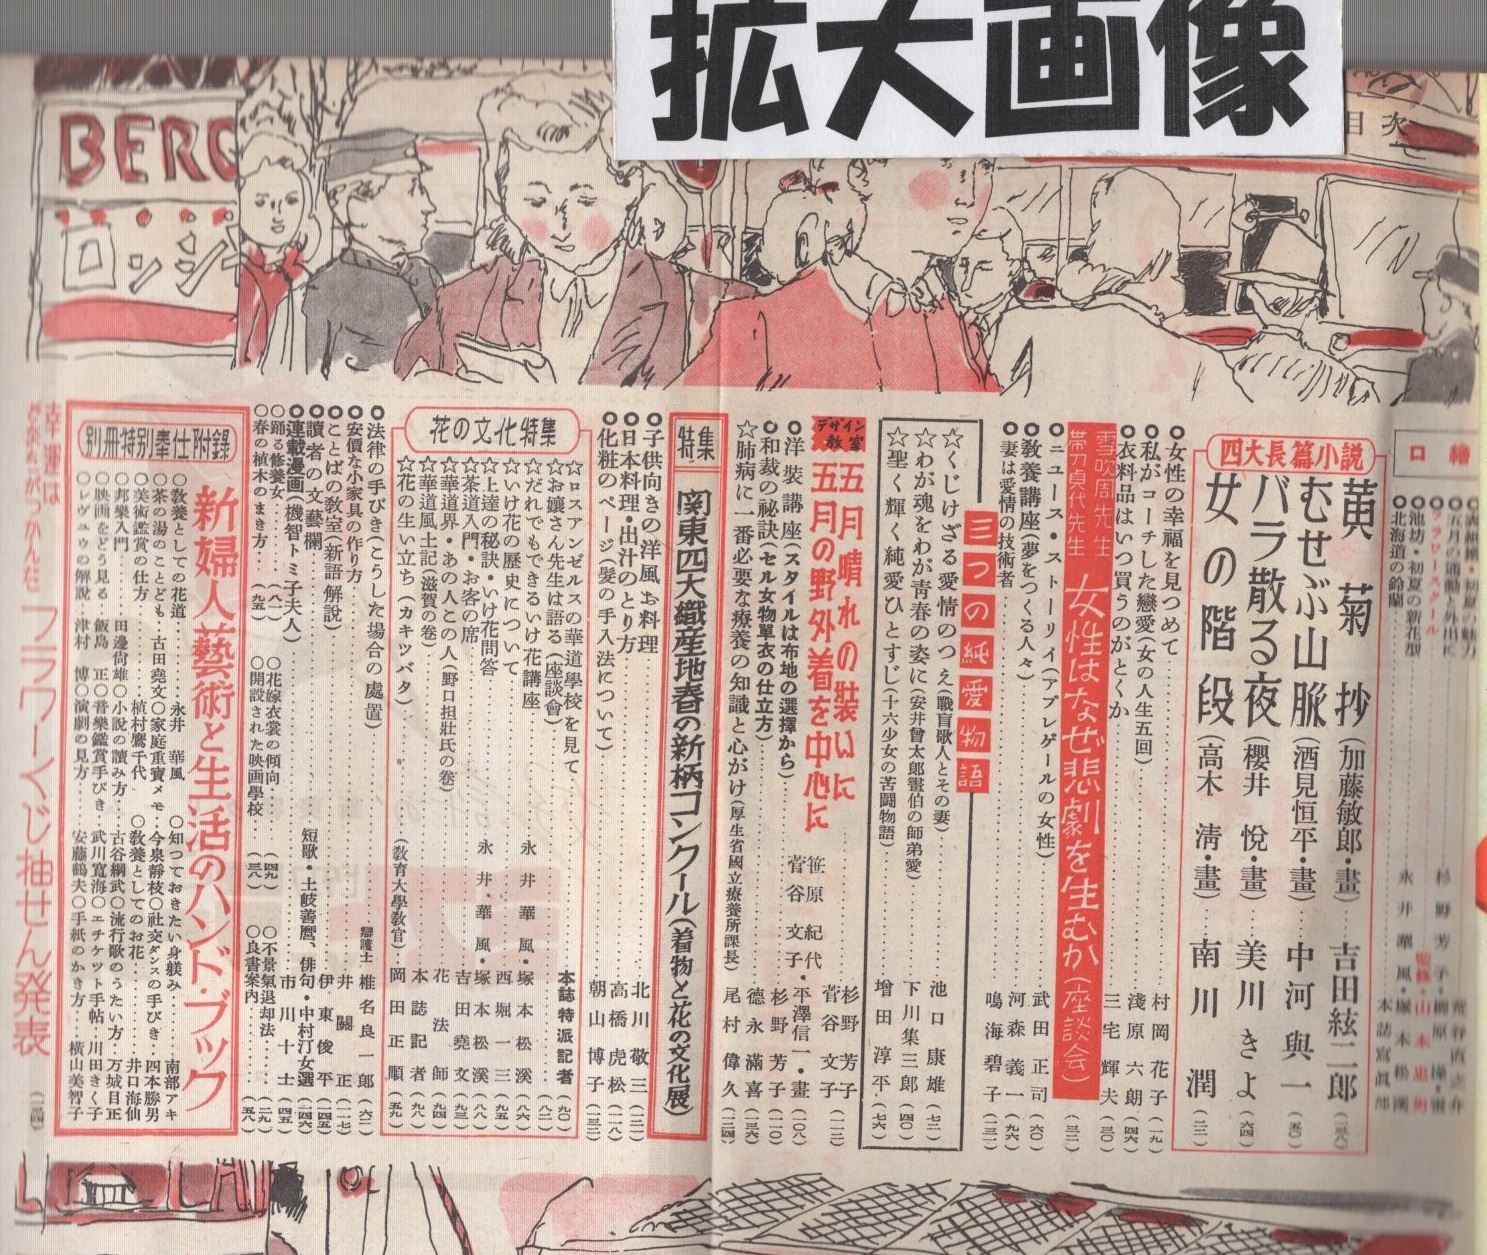 拡大画像
目次
BERG
ロッジ
口繪
五月の通勤と外出に
フラワースクール
池坊・初夏の新花型
北海道の鈴蘭
四大長篇小説
黄菊抄(加藤敏郎・畫)……吉田絃二郎
むせぶ山脈(酒見恒平・畫)……中河與一(五〇)
バラ散る夜(櫻井悅・畫)……美川きよ(六四)
女の階段(高木淸・畫)南川潤
女性の幸福を見つめて……村岡花子(一九)
私がコーチした戀愛(女の人生五回)……淺原六朗(四六)
衣料品はいつ買うのがとくか……三宅輝夫(三〇)
雪吹周先生
帯刀貞代先生
女性はなぜ悲劇を生むか(座談会)
ニュース・ストーリイ(アプレゲールの女性)……武田正司(六〇)
敎養講座(夢をつくる人々)……河森義一(九六)
妻は愛情の技術者……鳴海碧子(一三一)
三つの純愛物語
☆くじけざる愛情のつえ(戰盲歌人とその妻)……池口康雄(七二)
☆わが魂をわが靑春の姿に(安井曾太郎畫伯の師弟愛)……下川集三郎(四〇)
☆聖く輝く純愛ひとすじ(十六少女の苦闘物語)……增田淳平(七六)
デザイン教室
五月晴れの裝いに……杉野芳子
五月の野外着を中心に……菅谷文子(一二)
笹原紀代・平澤信一・畫(一〇八)
洋裝講座(スタイルは布地の選擇から)……菅谷文子・杉野芳子(一一〇)
和裁の祕訣(セル女物單衣の仕立方)……德永滿喜(一三六)
☆肺病に一番必要な療養の知識と心がけ(厚生省國立療養所課長)尾村偉久(一二四)
特集
関東四大織産地春の新柄コンクール(着物と花の文化展)
子供向きの洋風お料理……北川敬三(一二二)
日本料理・出汁のとり方……高橋虎松(一一八)
化粧のページ(髮の手入法について)……朝山博子(一三二)
花の文化特集
☆ロスアンゼルスの華道學校を見て……本誌特派記者(九〇)
☆お嬢さん先生は語る(座談會)……(八二)
☆だれでもできるいけ花講座……永井華風・塚本松溪(八六)
☆いけ花の歷史について……西堀一三(九五)
☆上達の秘訣・いけ花問答……永井華風・塚本松溪(八八)
☆茶道入門・お客の席……吉田堯文(九三)
☆華道界・あの人この人(野口担壯氏の卷)……花法師(九四)
☆華道風土記(滋賀の卷)……本誌記者(九八)
☆花の生い立ち(カキツバタ)……(敎育大學敎官)岡田正順(五九)
法律の手びき(こうした場合の處置)……辯護士 椎名良一郎(六二)
安價な小家具の作り方……井鬪正(一一七)
ことばの敎室(新語解說)……伊東俊平(四五)
讀者の文藝欄……短歌・土岐善麿、俳句・中村汀女選(一四六)
連載漫画(機智トミ子夫人)……市川十士(四五)
○踊る修養女……(八一)
○花嫁衣裳の傾向……(四九)
○不景氣退却法……(二九)
○春の植木のまき方……(九五)
○開設された映画學校……(三八)
○良書案内……(五八)
別冊特別奉仕附錄
新婦人藝術と生活のハンド・ブック
○敎養としての花道……永井華風 ○知つておきたい身躾み……南部アキ
○茶の湯のことども・古田堯文○家庭重寶メモ・今泉靜枝○社交ダンスの手びき・四本勝男
○美術鑑賞の仕方……植村鷹千代 ○敎養としてのお花……井口海仙
○邦樂入門……田邊尙雄○小說の讀み方……古谷綱武○流行歌のうたい方・万城目正
○映画をどう見る・飯島正○音樂鑑賞手びき・武川寛海○エチケット手帖・川田きく子
○レヴュウの解說・津村博○演劇の見方……安藤鶴夫○手紙のかき方……横山美智子
フラワーくじ抽せん発表